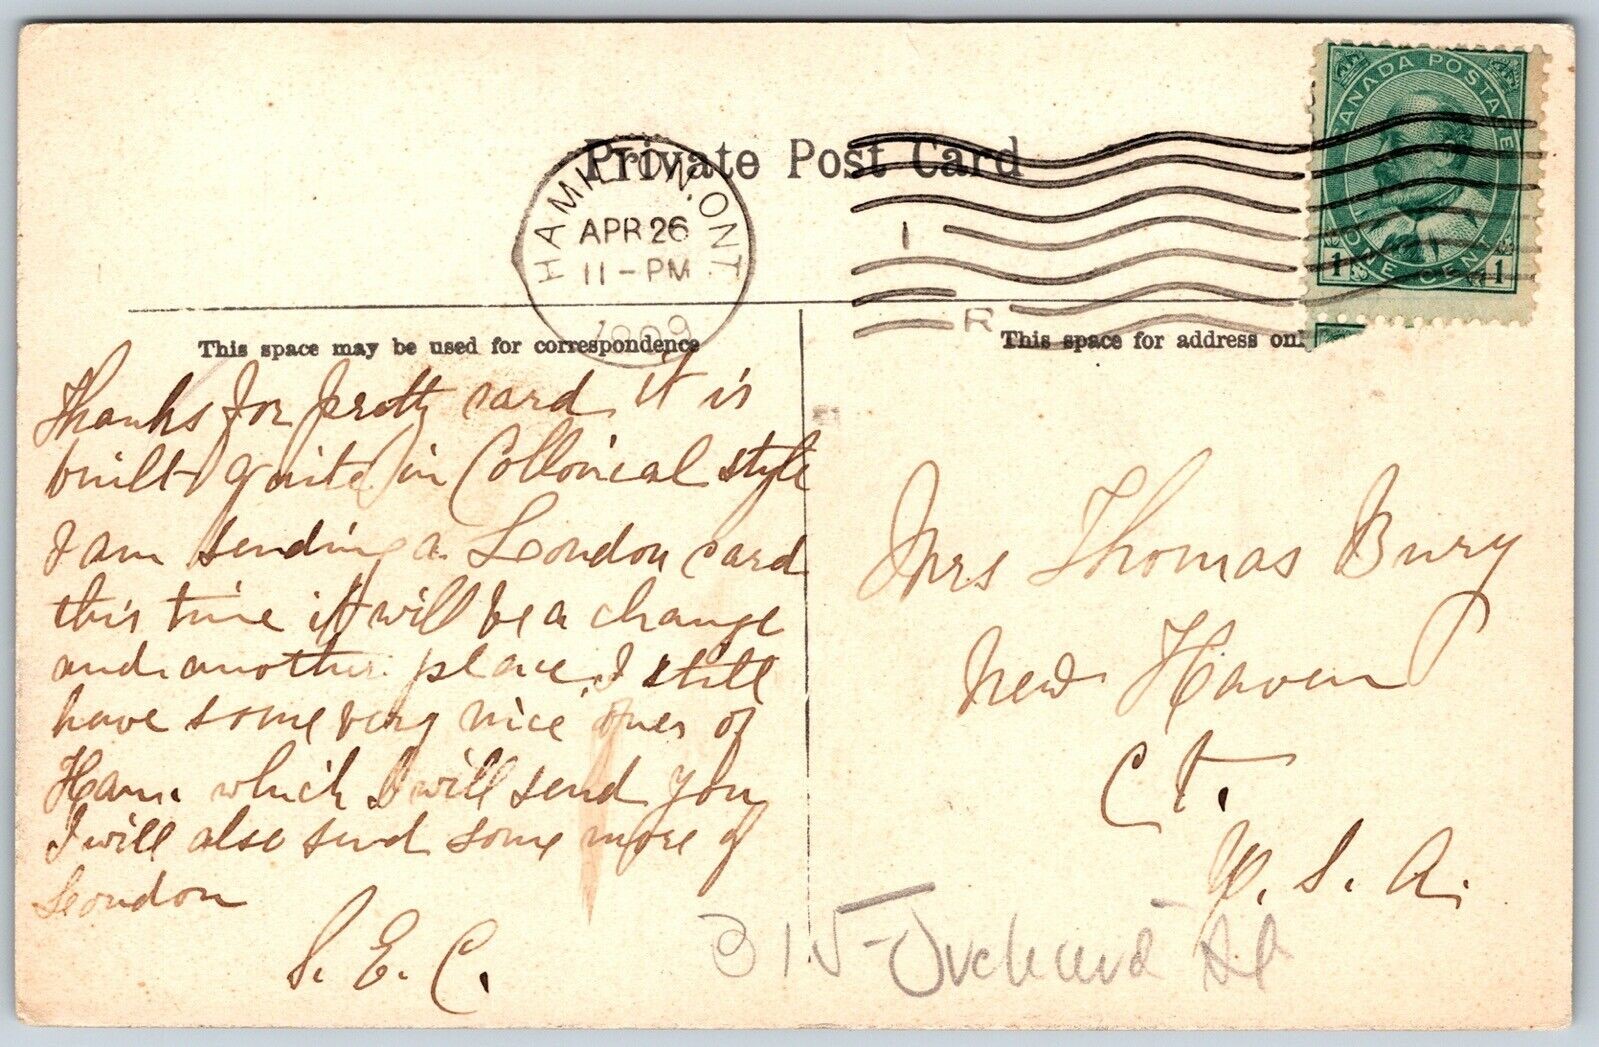 Private Post Card
HAMILTON, ONT.
APR 26
11-PM
1909
I
R
CANADA POSTAGE
1 ONE CENT 1
This space may be used for correspondence
This space for address onl
Thanks for pretty card, it is
built quite in Collonical style
I am sending a London card
this time it will be a change
and another place, I still
have some very nice ones of
Ham. which I will send you
I will also send some more of
London
S. E. C.
Mrs Thomas Bury
New Haven
Ct.
U. S. A.
315 Orchard St